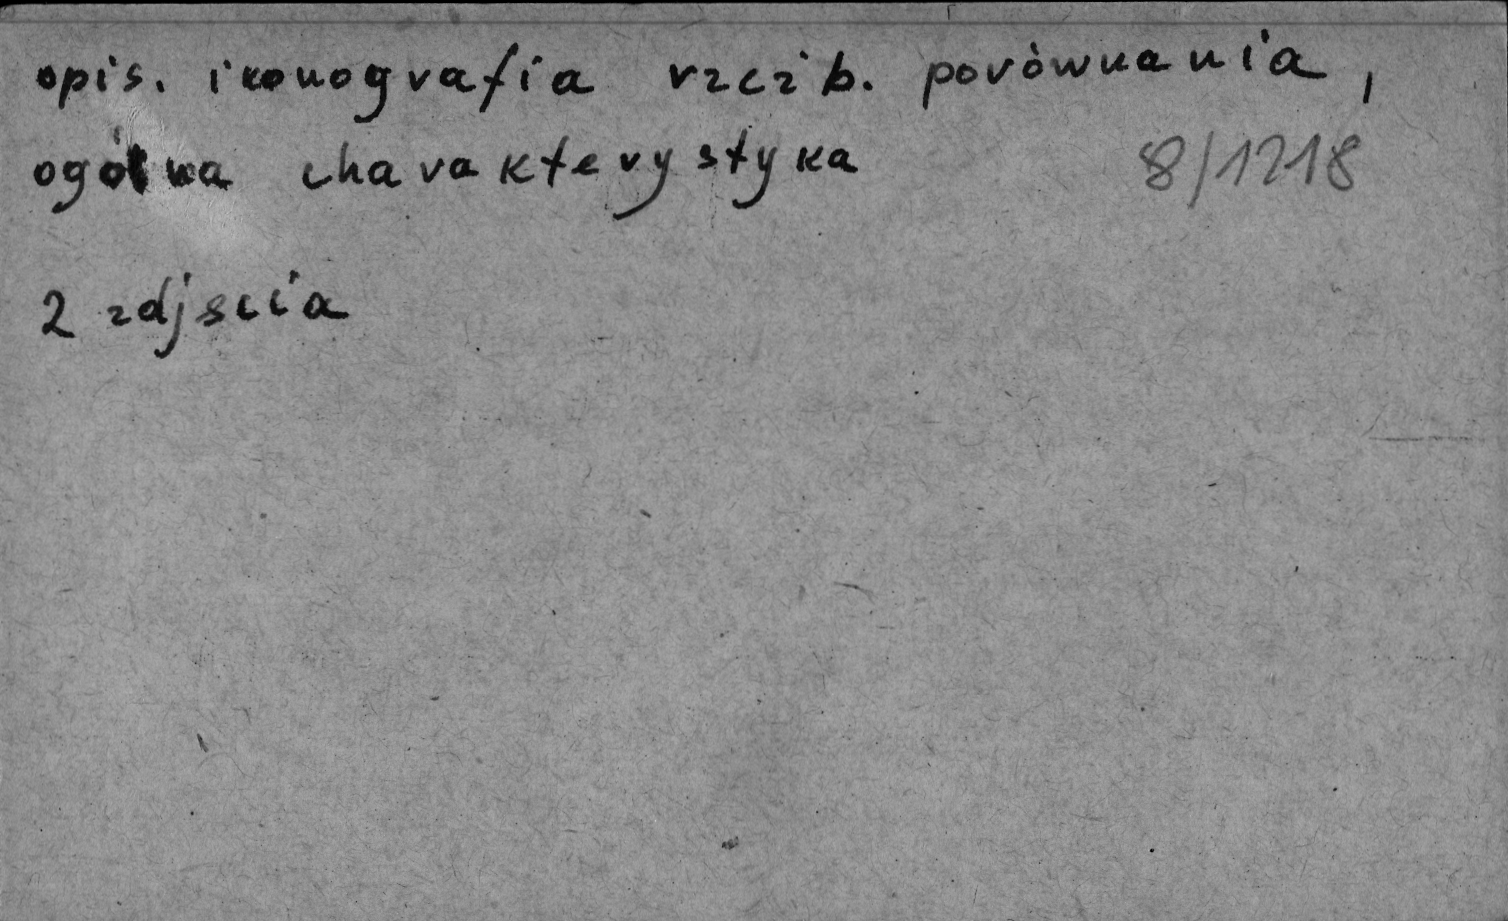 opis. ikonografia rzeźb. porównania,
ogólna charakterystyka 8/1218
2 zdjscia